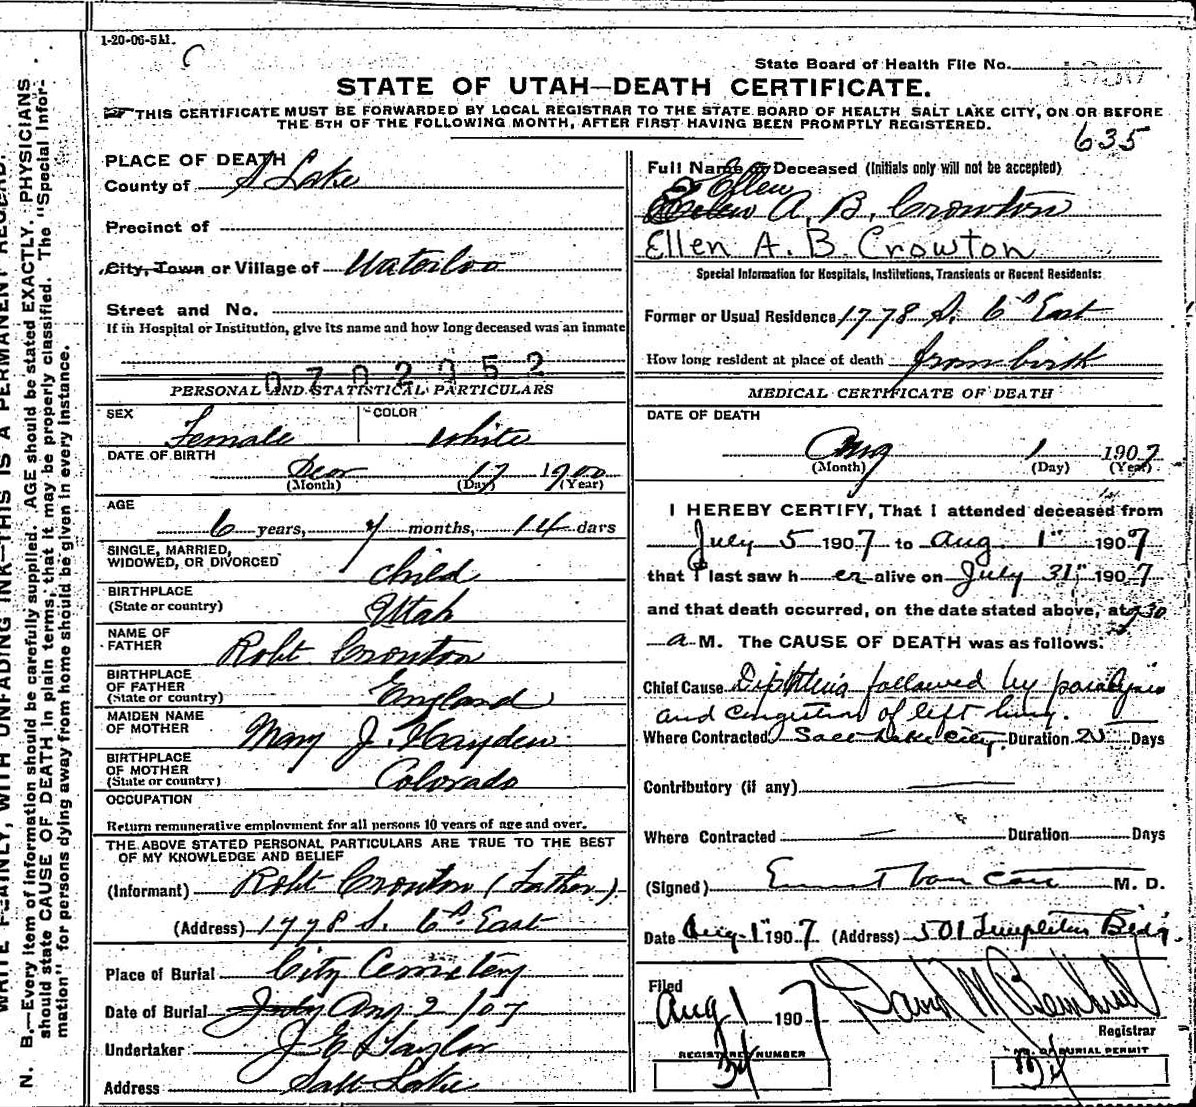 1-20-06-5M.
C
State Board of Health File No.
STATE OF UTAH—DEATH CERTIFICATE.
THIS CERTIFICATE MUST BE FORWARDED BY LOCAL REGISTRAR TO THE STATE BOARD OF HEALTH SALT LAKE CITY, ON OR BEFORE
THE 5TH OF THE FOLLOWING MONTH, AFTER FIRST HAVING BEEN PROMPTLY REGISTERED.
635
PLACE OF DEATH
County of S Lake
Precinct of
City, Town or Village of Waterloo
Street and No.
If in Hospital or Institution, give its name and how long deceased was an inmate
PERSONAL AND STATISTICAL PARTICULARS
SEX Female COLOR White
DATE OF BIRTH
Decr 17 1900
(Month) (Day) (Year)
AGE
6 years, 7 months, 14 days
SINGLE, MARRIED,
WIDOWED, OR DIVORCED child
BIRTHPLACE
(State or country) Utah
NAME OF
FATHER Robt Crowton
BIRTHPLACE
OF FATHER
(State or country) England
MAIDEN NAME
OF MOTHER Mary J. Hayden
BIRTHPLACE
OF MOTHER
(State or country) Colorado
OCCUPATION
Return remunerative employment for all persons 10 years of age and over.
THE ABOVE STATED PERSONAL PARTICULARS ARE TRUE TO THE BEST
OF MY KNOWLEDGE AND BELIEF
(Informant) Robt Crowton (Father)
(Address) 1778 S. 6th East
Place of Burial City Cemetery
Date of Burial July Aug 2/07
Undertaker J E Taylor
Address Salt Lake
Full Name of Deceased (Initials only will not be accepted)
Ellen
A. B. Crowton
Ellen A. B. Crowton
Special Information for Hospitals, Institutions, Transients or Recent Residents:
Former or Usual Residence 1778 S. 6th East
How long resident at place of death from birth
MEDICAL CERTIFICATE OF DEATH
DATE OF DEATH
Aug 1 1907
(Month) (Day) (Year)
I HEREBY CERTIFY, That I attended deceased from
July 5 1907 to Aug. 1st 1907
that I last saw her alive on July 31st, 1907
and that death occurred, on the date stated above, at
a M. The CAUSE OF DEATH was as follows:
Chief Cause Diphtheria followed by paralysis
and congestion of left lung.
Where Contracted Salt Lake City. Duration 25 Days
Contributory (if any)
Where Contracted Duration Days
(Signed) M. D.
Date Aug 1st 1907 (Address) 501 Templeton Bldg.
Filed
Aug 1 1907
Registrar
REGISTERED NUMBER
OF BURIAL PERMIT
WRITE PLAINLY, WITH UNFADING INK—THIS IS A PERMANENT RECORD.
N. B.—Every item of information should be carefully supplied. AGE should be stated EXACTLY. PHYSICIANS
should state CAUSE OF DEATH in plain terms, that it may be properly classified. The "Special Infor-
mation" for persons dying away from home should be given in every instance.